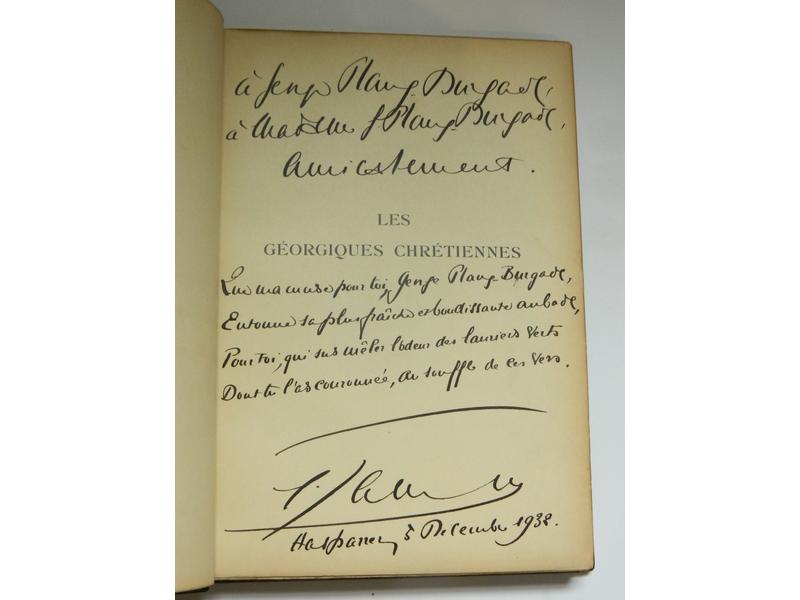 à Serge Planz. Burgade,
à Madame S Planz. Burgade,
amicalement.
LES
GÉORGIQUES CHRÉTIENNES
Que ma muse pour toi, Serge Planz Burgade,
Entonne sa plus fraîche et bondissante aubade,
Pour toi, qui sus mêler l'odeur des lauriers verts
Dont tu l'as couronnée, au souffle de ces vers.
Hasparren, 5 Décembre 1932.